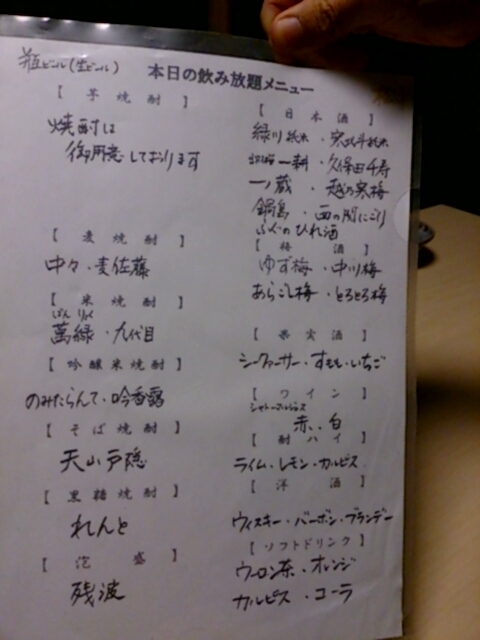 瓶ビール(生ビール)
本日の飲み放題メニュー
【芋焼酎】
焼酎は
御用意しております
【麦焼酎】
中々・麦佐藤
【米焼酎】
ばんりょく
萬緑・九代目
【吟醸米焼酎】
のみたらんて・吟香露
【そば焼酎】
天山戸隠
【黒糖焼酎】
れんと
【泡盛】
残波
【日本酒】
緑川純米・
一耕・久保田千寿
一ノ蔵・越の寒梅
鍋島・西の関にごり
ふぐのひれ酒
【梅酒】
ゆず梅・中川梅
あらごし梅・とろとろ梅
【果実酒】
シークヮーサー・すもも・いちご
【ワイン】
赤・白
【酎ハイ】
ライム・レモン・カルピス
【洋酒】
ウィスキー・バーボン・ブランデー
【ソフトドリンク】
ウーロン茶・オレンジ
カルピス・コーラ